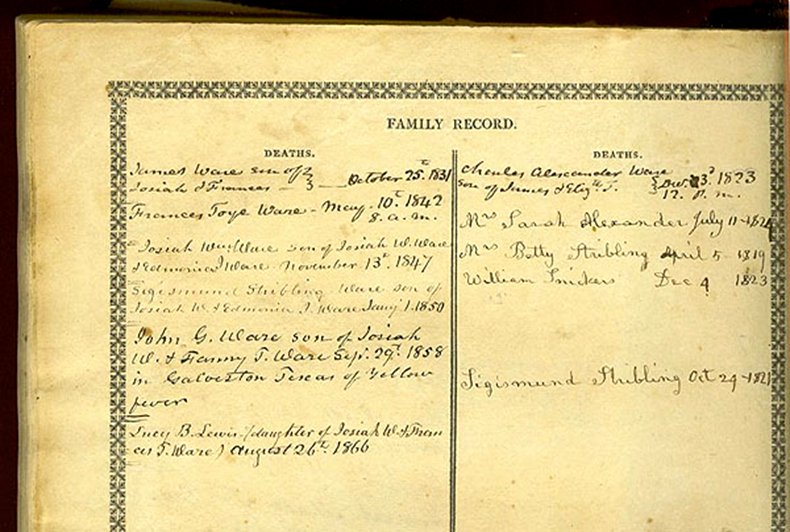 FAMILY RECORD.
DEATHS.
James Ware son of
Josiah & Frances — October 25th 1831
Frances Toye Ware - May. 10th 1842
8. a. m.
Josiah Wm Ware son of Josiah W. Ware
& Edmonia J Ware. November 13th 1847
Sigismund Stribling Ware son of
Josiah W. & Edmonia J. Ware Jany 1 1850
John G. Ware son of Josiah
W. & Fanny T. Ware Sep. 29th 1858
in Galveston Texas of Yellow
fever
Lucy B. Lewis (daughter of Josiah W & Fran
ces T. Ware) August 26th 1866
DEATHS.
Charles Alexander Ware
son of James & Elizth T. Dec. 1823
12. P. m.
Mrs Sarah Alexander July 11 - 1824
Mrs Betty Stribling April 5 1819
William Snickers Dec 4 1823
Sigismund Stribling Oct 29 - 1821